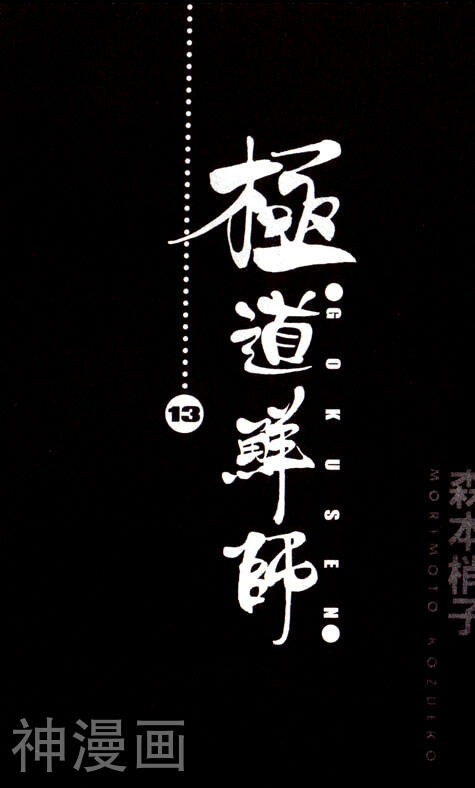 極道鮮師
GOKUSEN
13
森本梢子
MORIMOTO KOZUEKO
神漫画